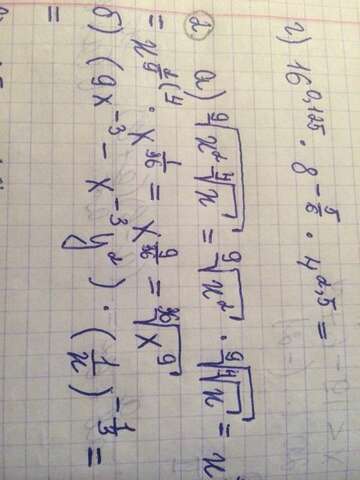 г) 16^{0,125} · 8^{-\frac{5}{6}} · 4^{2,5} =
② а) \sqrt[9]{x^2 \sqrt[4]{x}} = \sqrt[9]{x^2} · \sqrt[9]{\sqrt[4]{x}} = x
= x^{\frac{2}{9}(4} · x^{\frac{1}{36}} = x^{\frac{9}{36}} = \sqrt[36]{x^9}
б) (9x^{-3} - x^{-3}y^2) · (\frac{1}{x})^{-\frac{1}{3}} =
=